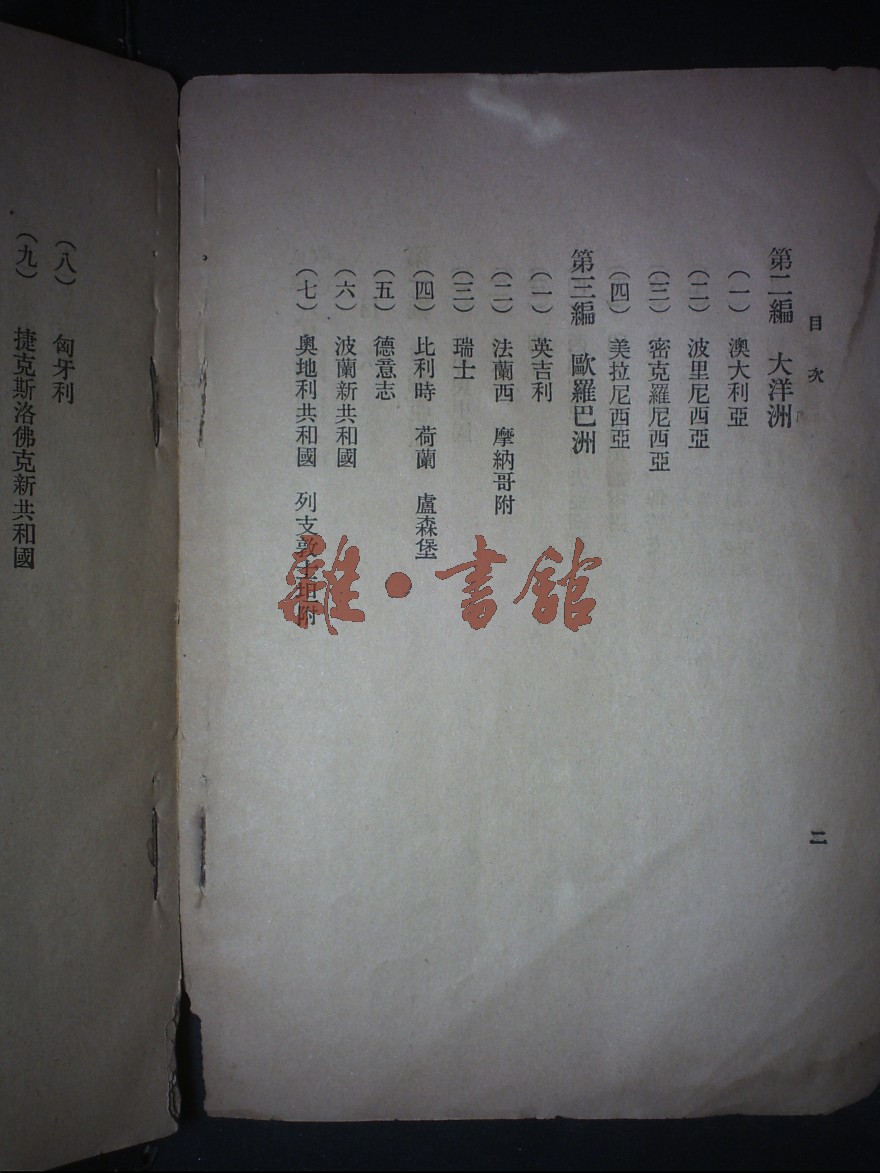 目次
二
第二編　大洋洲
（一）　澳大利亞
（二）　波里尼西亞
（三）　密克羅尼西亞
（四）　美拉尼西亞
第三編　歐羅巴洲
（一）　英吉利
（二）　法蘭西　摩納哥附
（三）　瑞士
（四）　比利時　荷蘭　盧森堡
（五）　德意志
（六）　波蘭新共和國
（七）　奧地利共和國　列支敦士坦附
（八）　匈牙利
（九）　捷克斯洛佛克新共和國
雜·書館